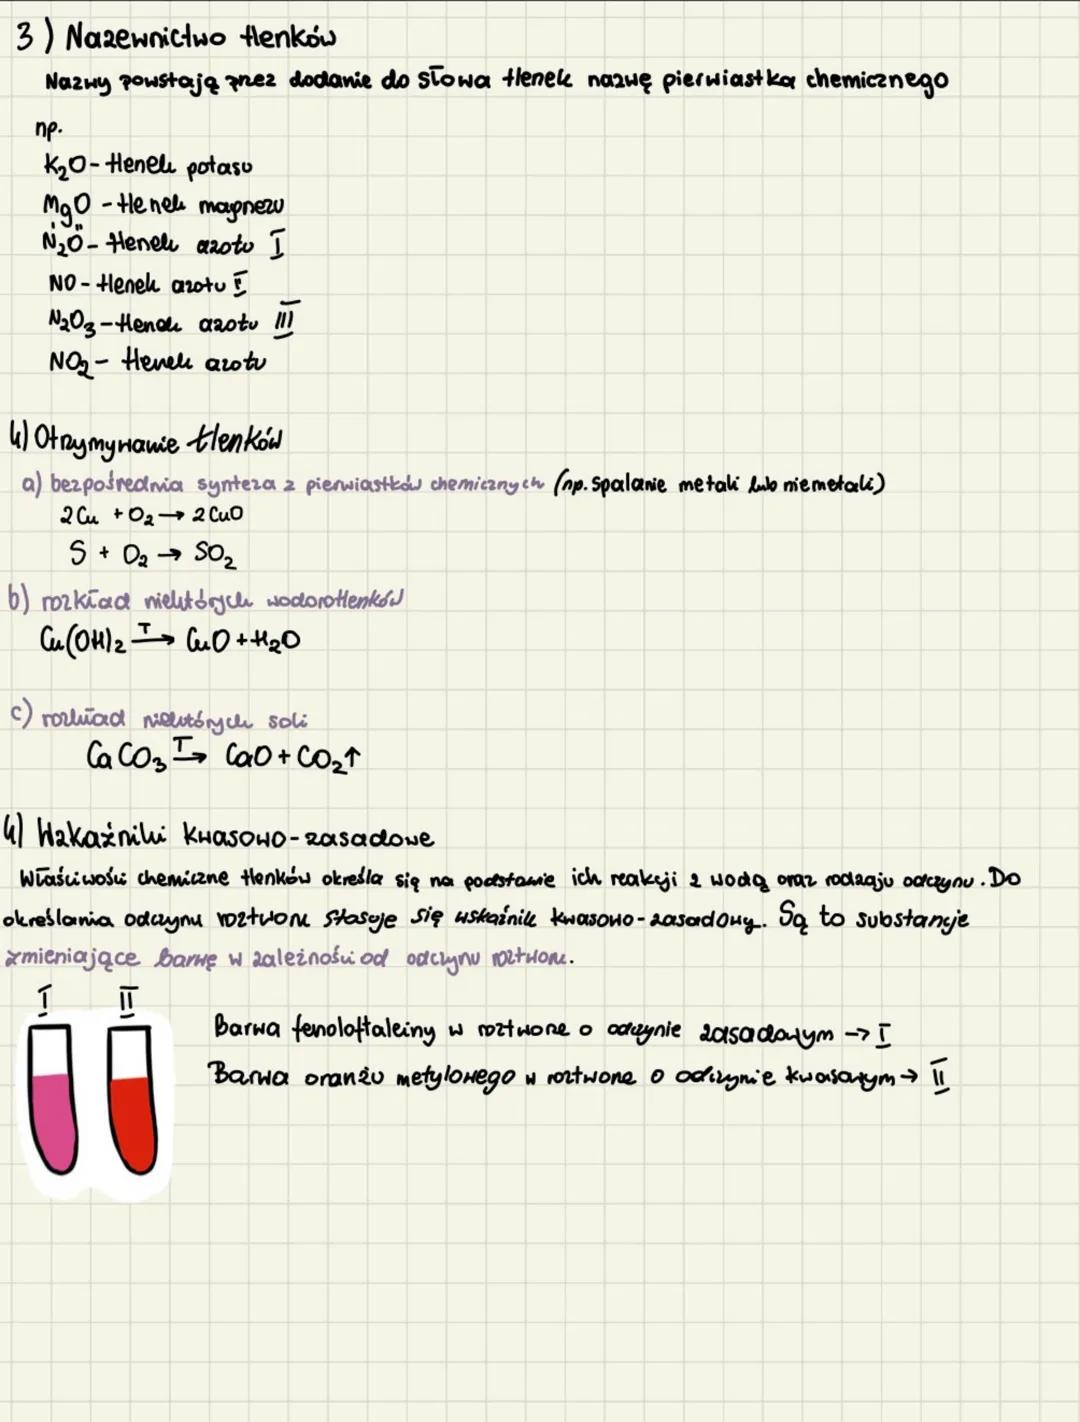 3) Nazewnictwo tlenków
Nazwy powstają przez dodanie do słowa tlenek nazwę pierwiastka chemicznego
np.
K₂O - tlenek potasu
MgO - tlenek magnezu
I II
N₂O - tlenek azotu I
NO - tlenek azotu II
N₂O₃ - tlenek azotu III
NO₂ - tlenek azotu
4) Otrzymywanie tlenków
a) bezpośrednia synteza z pierwiastków chemicznych (np. spalanie metali lub niemetali)
2Cu + O₂ → 2CuO
S + O₂ → SO₂
b) rozkład niektórych wodorotlenków
Cu(OH)₂ T→ CuO + H₂O
c) rozkład niektórych soli
CaCO₃ T→ CaO + CO₂↑
4) Wskaźniki kwasowo-zasadowe
Właściwości chemiczne tlenków określa się na podstawie ich reakcji z wodą oraz rodzaju odczynu. Do
określania odczynu roztworu stosuje się wskaźnik kwasowo-zasadowy. Są to substancje
zmieniające barwę w zależności od odczynu roztworu.
I II
Barwa fenoloftaleiny w roztworze o odczynie zasadowym → I
Barwa oranżu metylowego w roztworze o odczynie kwasowym → II